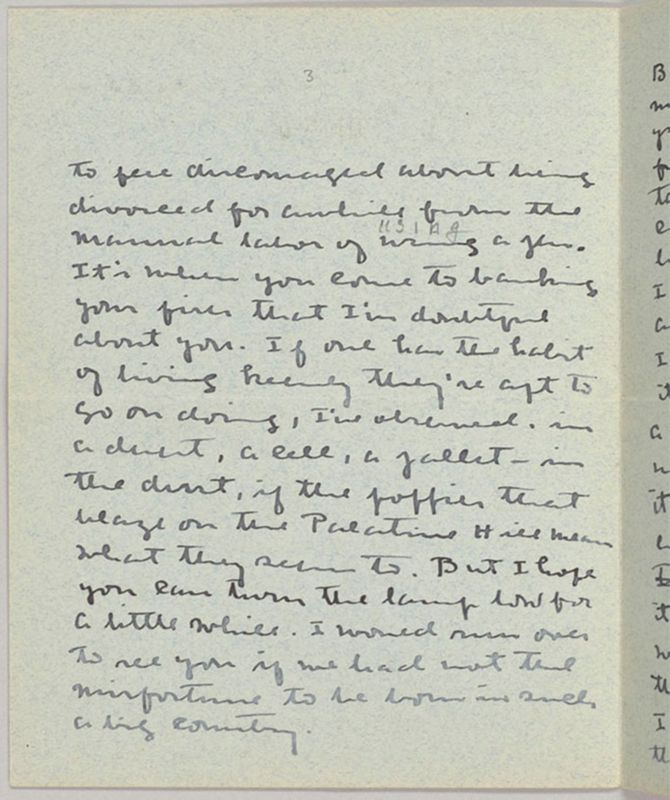 3
to feel discouraged about being
divorced for awhile from the
using
manual labor of using a pen.
It's when you come to banking
your fires that I'm doubtful
about you. If one has the habit
of living keenly they're apt to
go on doing, I've observed. in
a desert, a cell, a pallet – in
the dust, if the poppies that
blaze on the Palatine Hill mean
what they seem to. But I hope
you can turn the lamp low for
a little while. I would run over
to see you if we had not the
misfortune to be born in such
a big country.